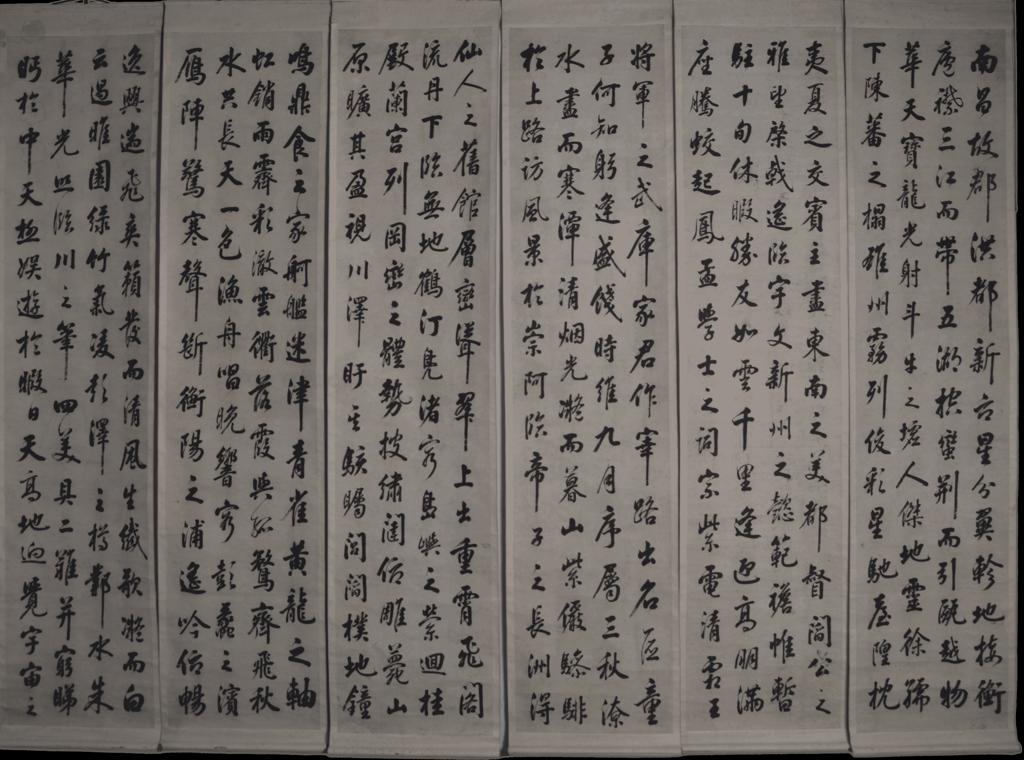 南昌故郡洪都新府星分翼軫地接衡
廬襟三江而帶五湖控蠻荊而引甌越物
華天寶龍光射斗牛之墟人傑地靈徐孺
下陳蕃之榻雄州霧列俊彩星馳臺隍枕
夷夏之交賓主盡東南之美都督閻公之
雅望棨戟遙臨宇文新州之懿範襜帷暫
駐十旬休暇勝友如雲千里逢迎高朋滿
座騰蛟起鳳孟學士之詞宗紫電清霜王
將軍之武庫家君作宰路出名區童
子何知躬逢盛餞時維九月序屬三秋潦
水盡而寒潭清烟光凝而暮山紫儼驂騑
於上路訪風景於崇阿臨帝子之長洲得
仙人之舊館層巒聳翠上出重霄飛閣
流丹下臨無地鶴汀鳧渚窮島嶼之縈迴桂
殿蘭宮列岡巒之體勢披繡闥俯雕甍山
原曠其盈視川澤盱其駭矚閭閻樸地鐘
鳴鼎食之家舸艦迷津青雀黃龍之軸
虹銷雨霽彩澈雲衢落霞與孤鶩齊飛秋
水共長天一色漁舟唱晚響窮彭蠡之濱
雁陣驚寒聲斷衡陽之浦遙吟俯暢
逸興遄飛爽籟發而清風生纖歌凝而白
雲遏睢園綠竹氣凌彭澤之樽鄴水朱
華光照臨川之筆四美具二難并窮睇
眄於中天極娛遊於暇日天高地迥覺宇宙之